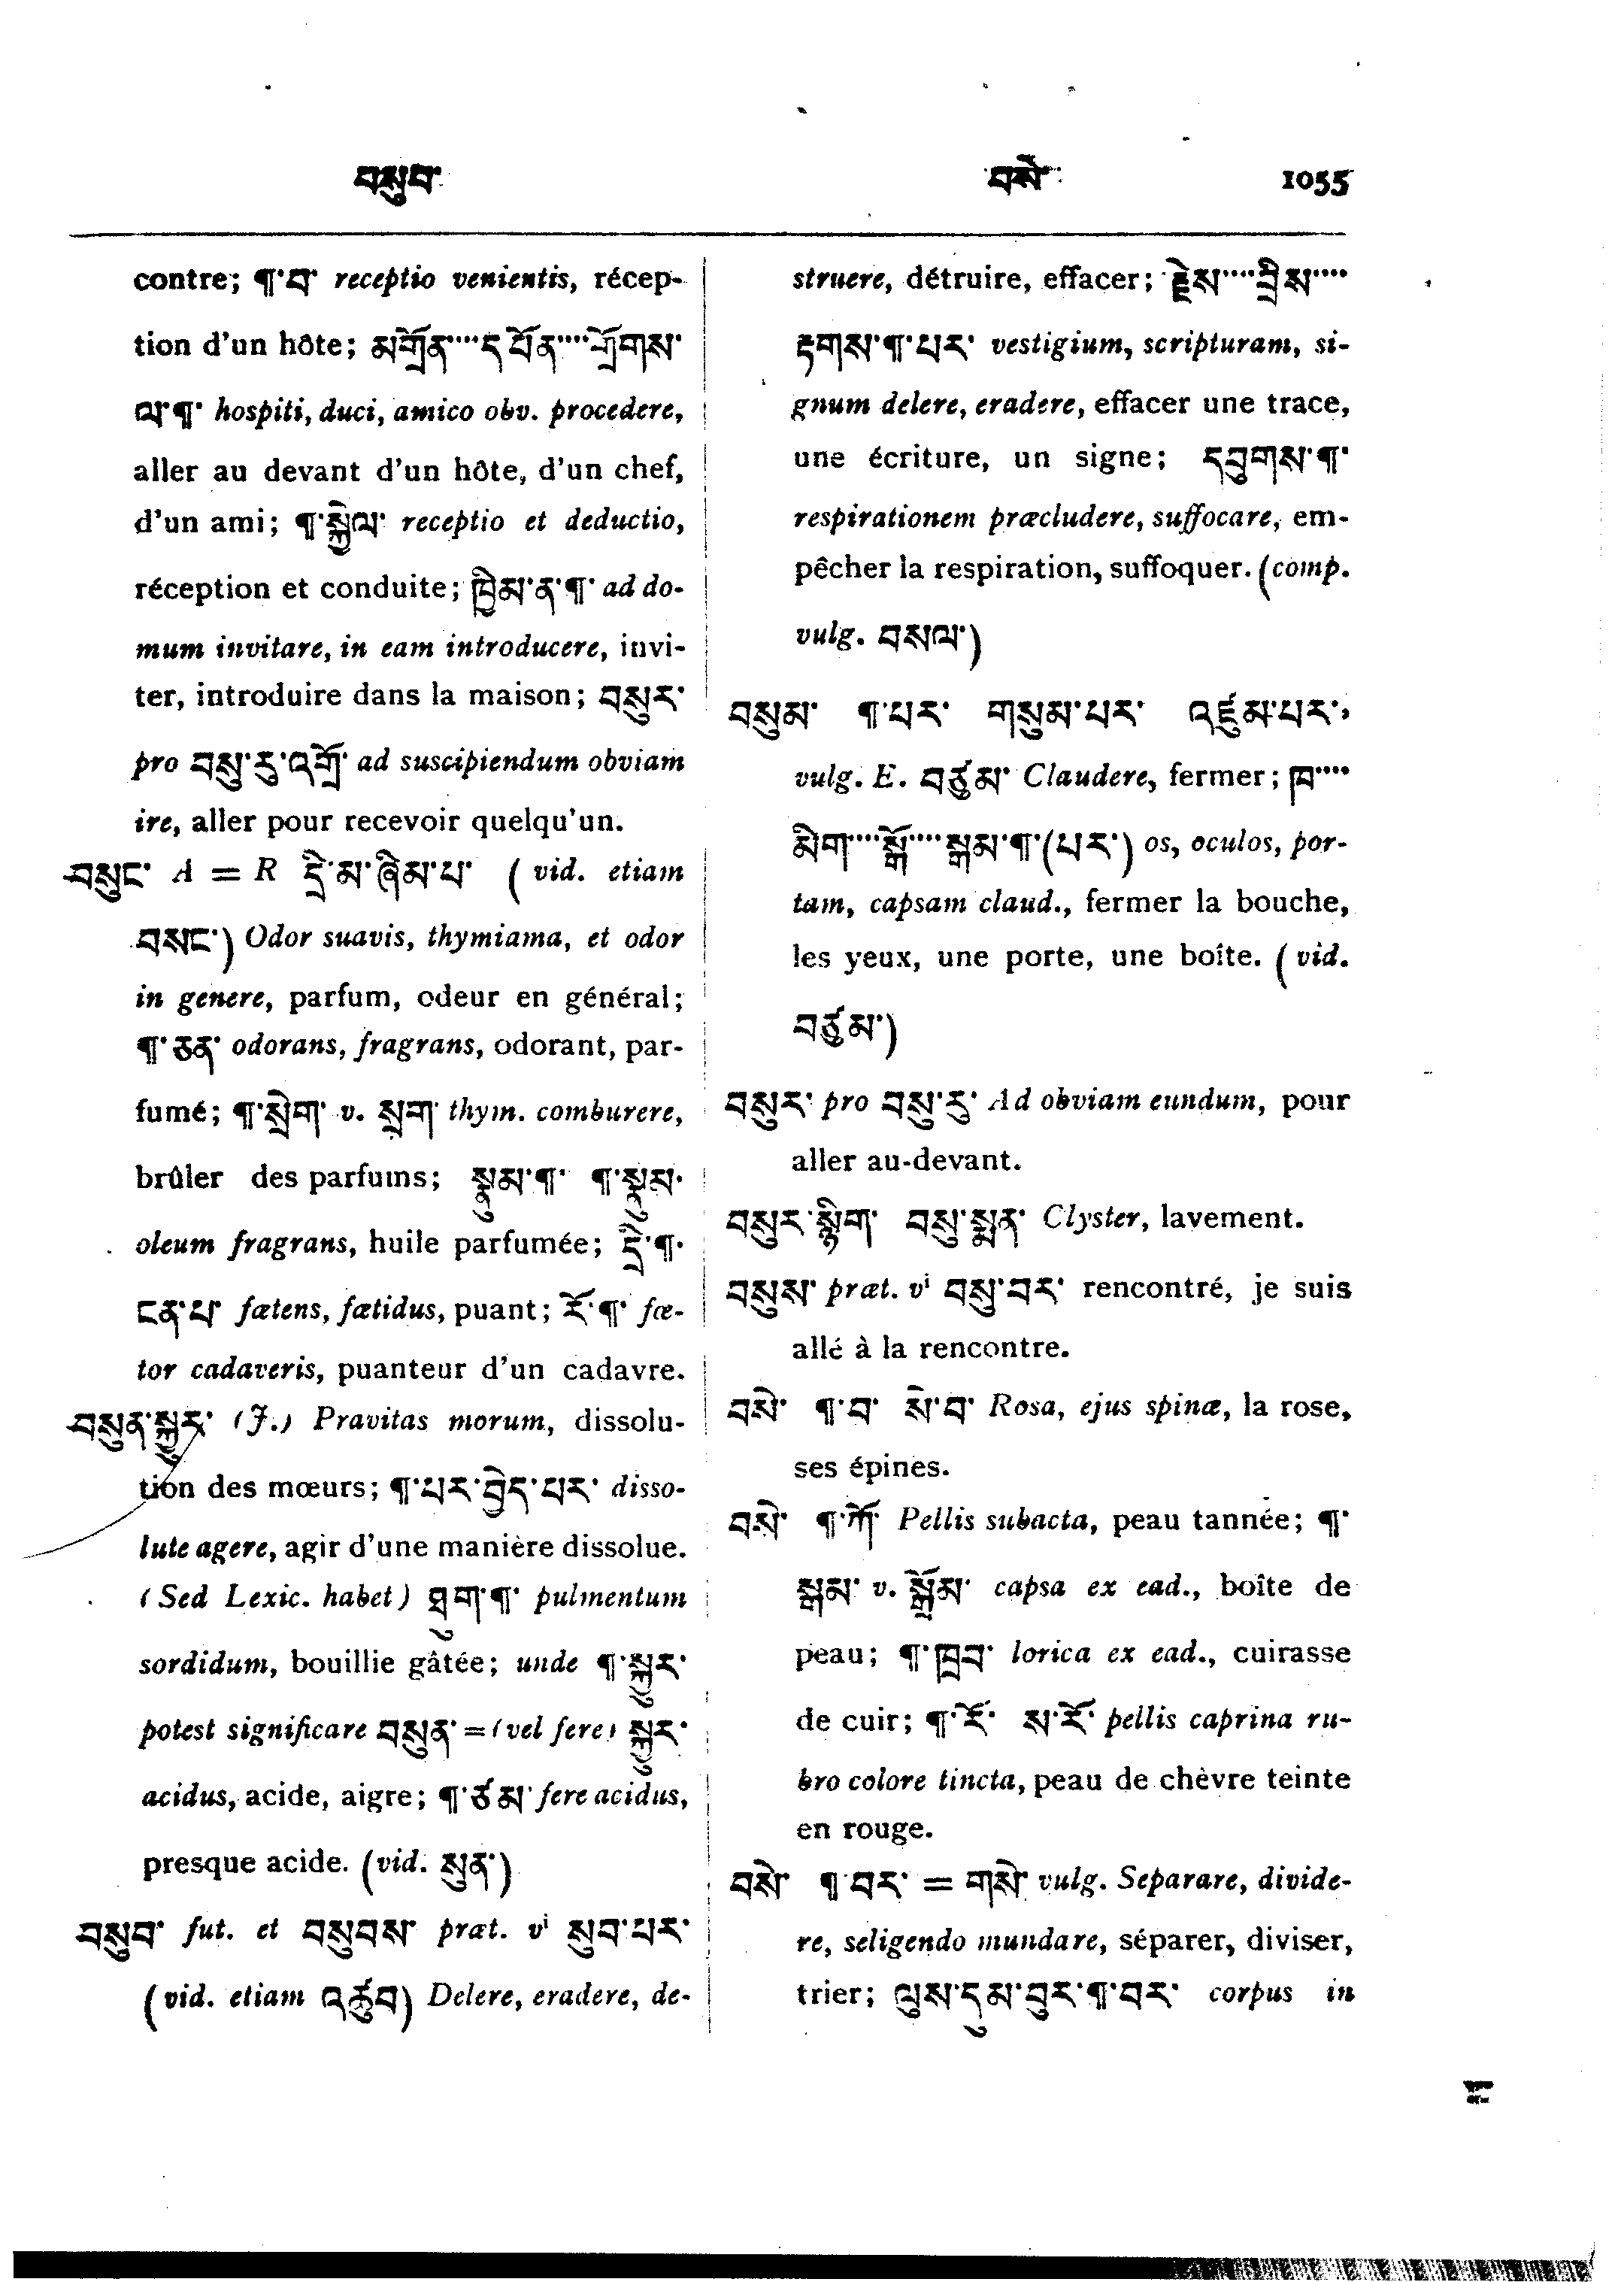 བསུབ་ བསེ་ 1055
contre; ¶་བ་ receptio venientis, récep-
tion d'un hôte; མགྲོན་····དཔོན་····གྲོགས་
ལ་¶་ hospiti, duci, amico obv. procedere,
aller au devant d'un hôte, d'un chef,
d'un ami; ¶་སྐྱེལ་ receptio et deductio,
réception et conduite; ཁྱིམ་ན་¶་ ad do-
mum invitare, in eam introducere, invi-
ter, introduire dans la maison; བསུར་
pro བསུ་རུ་འགྲོ་ ad suscipiendum obviam
ire, aller pour recevoir quelqu'un.
བསུང་ A = R དྲི་མ་ཞིམ་པ་ (vid. etiam
བསང་) Odor suavis, thymiama, et odor
in genere, parfum, odeur en général;
¶་ཅན་ odorans, fragrans, odorant, par-
fumé; ¶་སྲེག་ v. སྲག་ thym. comburere,
brûler des parfums; སྣུམ་¶་ ¶་སྣུམ་
oleum fragrans, huile parfumée; དྲི་¶་
ངན་པ་ fœtens, fœtidus, puant; རོ་¶་ fœ-
tor cadaveris, puanteur d'un cadavre.
བསུན་སྐྱུར་ (J.) Pravitas morum, dissolu-
tion des mœurs; ¶་པར་བྱེད་པར་ disso-
lute agere, agir d'une manière dissolue.
(Sed Lexic. habet) ཐུག་¶་ pulmentum
sordidum, bouillie gâtée; unde ¶་སྐྱུར་
potest significare བསུན་ = (vel fere) སྐྱུར་
acidus, acide, aigre; ¶་ཙམ་ fere acidus,
presque acide. (vid. སུན་)
བསུབ་ fut. et བསུབས་ præt. vi སུབ་པར་
(vid. etiam འཚུབ) Delere, eradere, de-
struere, détruire, effacer; རྗེས་····བྲིས་····
རྟགས་¶་པར་ vestigium, scripturam, si-
gnum delere, eradere, effacer une trace,
une écriture, un signe; དབུགས་¶་
respirationem præcludere, suffocare, em-
pêcher la respiration, suffoquer. (comp.
vulg. བསལ་)
བསུམ་ ¶་པར་ གསུམ་པར་ འཛུམ་པར་,
vulg. E. བཙུམ་ Claudere, fermer; ཁ་····
མིག་····སྒོ་····སྒམ་¶་(པར་) os, oculos, por-
tam, capsam claud., fermer la bouche,
les yeux, une porte, une boîte. (vid.
བཙུམ་)
བསུར་ pro བསུ་རུ་ Ad obviam eundum, pour
aller au-devant.
བསུར་སྙིག་ བསུ་སྨན་ Clyster, lavement.
བསུས་ præt. vi བསུ་བར་ rencontré, je suis
allé à la rencontre.
བསེ་ ¶་བ་ སེ་བ་ Rosa, ejus spinæ, la rose,
ses épines.
བསེ་ ¶་ཀོ་ Pellis subacta, peau tannée; ¶་
སྒམ་ v. སྒྲོམ་ capsa ex ead., boîte de
peau; ¶་ཁྲབ་ lorica ex ead., cuirasse
de cuir; ¶་རོ་ ས་རོ་ pellis caprina ru-
bro colore tincta, peau de chèvre teinte
en rouge.
བསེ་ ¶་བར་ = གསེ་ vulg. Separare, divide-
re, seligendo mundare, séparer, diviser,
trier; ལུས་དུམ་བུར་¶་བར་ corpus in